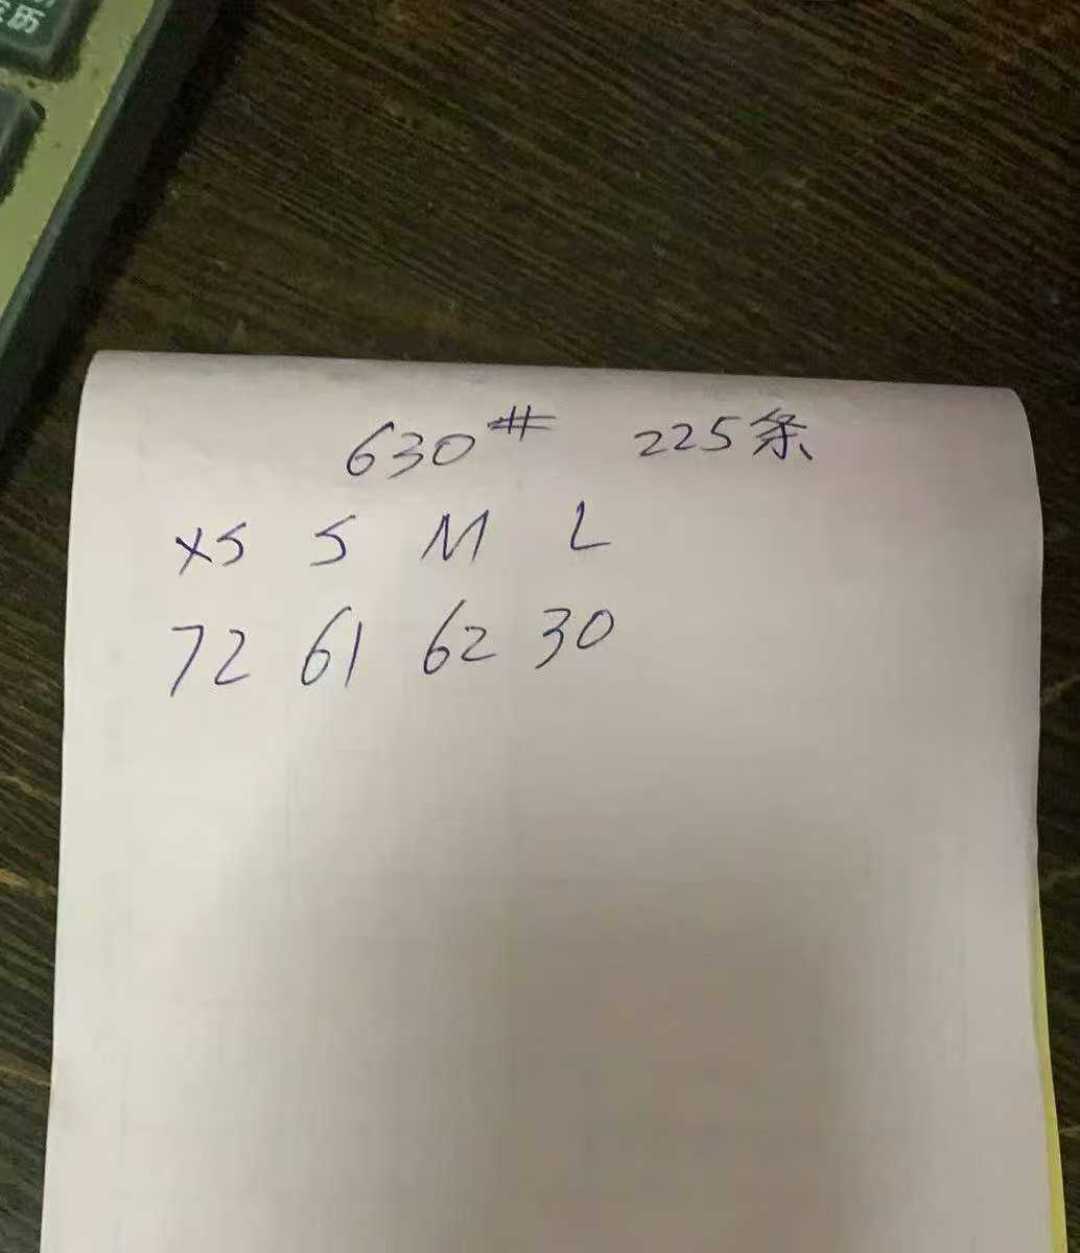 历
630# 225条
XS S M L
72 61 62 30